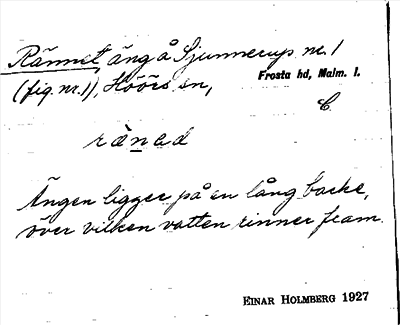 Rännet, äng å Sjunnerup nr. 1
(fig. nr. 1), Höörs sn, Frosta hd, Malm. l.
C.
rä̀nəd
Ängen ligger på en lång backe,
över vilken vatten rinner fram.
EINAR HOLMBERG 1927